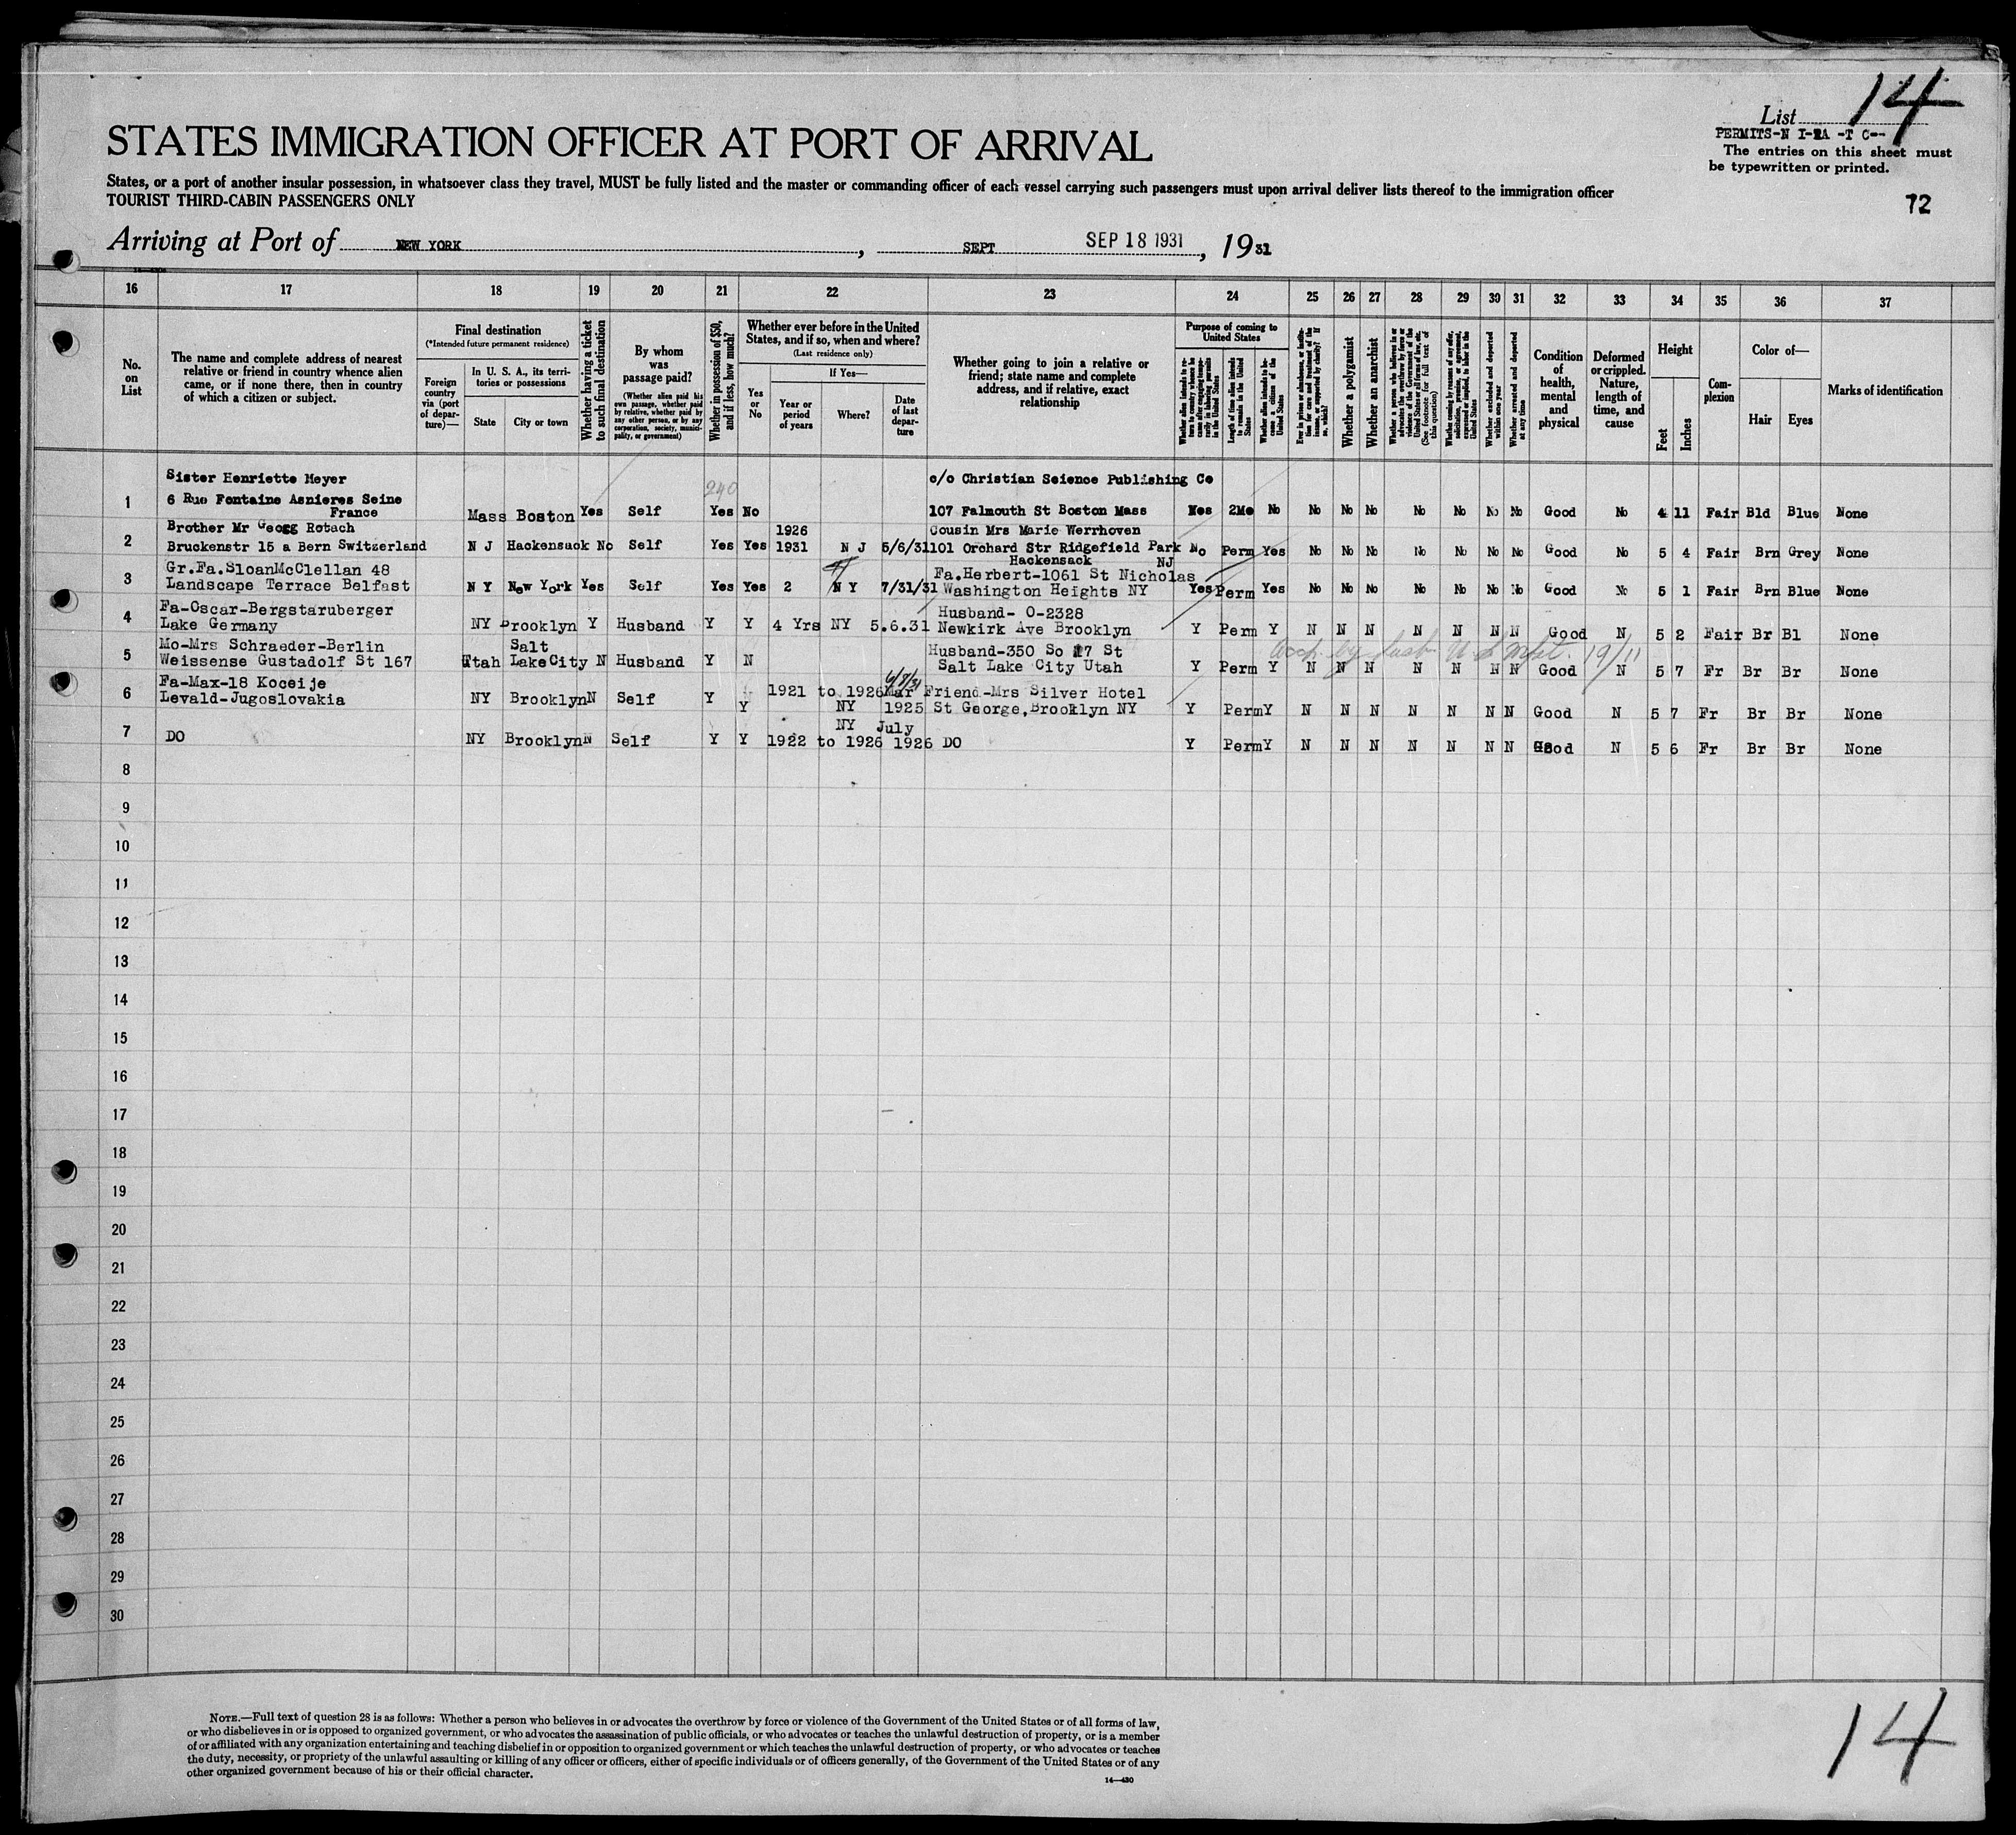 14
List
PERMITS-N I-RA -T C--
The entries on this sheet must
be typewritten or printed.
STATES IMMIGRATION OFFICER AT PORT OF ARRIVAL
States, or a port of another insular possession, in whatsoever class they travel, MUST be fully listed and the master or commanding officer of each vessel carrying such passengers must upon arrival deliver lists thereof to the immigration officer
TOURIST THIRD-CABIN PASSENGERS ONLY
72
Arriving at Port of NEW YORK, SEPT SEP 18 1931, 1931
16 17 18 19 20 21 22 23 24 25 26 27 28 29 30 31 32 33 34 35 36 37
No. on List
The name and complete address of nearest relative or friend in country whence alien came, or if none there, then in country of which a citizen or subject.
Final destination
(*Intended future permanent residence)
Foreign country via (port of departure)—
In U. S. A., its territories or possessions
State
City or town
Whether having a ticket to such final destination
By whom was passage paid?
(Whether alien paid his own passage, whether paid by relative, whether paid by any other person, or by any corporation, society, municipality, or government)
Whether in possession of $50, and if less, how much?
Whether ever before in the United States, and if so, when and where?
(Last residence only)
Yes or No
If Yes—
Year or period of years
Where?
Date of last departure
Whether going to join a relative or friend; state name and complete address, and if relative, exact relationship
Purpose of coming to United States
Length of time alien intends to remain in the United States
Whether alien intends to become a citizen of the United States
Whether a polygamist
Whether an anarchist
Whether excluded and deported within one year
Whether arrested and deported at any time
Condition of health, mental and physical
Deformed or crippled. Nature, length of time, and cause
Height
Feet
Inches
Complexion
Color of—
Hair
Eyes
Marks of identification
Sister Henriette Meyer c/o Christian Science Publishing Co
240
1 6 Rue Fontaine Asnieres Seine
France Mass Boston Yes Self Yes No 107 Falmouth St Boston Mass Yes 2Mo No No No No No No No No Good No 4 11 Fair Bld Blue None
Brother Mr Geogg Rotach 1926 Cousin Mrs Marie Werrhoven
2 Bruckenstr 15 a Bern Switzerland N J Hackensack No Self Yes Yes 1931 N J 5/6/31 101 Orchard Str Ridgefield Park No Perm Yes No No No No No No No Good No 5 4 Fair Brn Grey None
Hackensack NJ
Gr.Fa.SloanMcClellan 48 Fa.Herbert-1061 St Nicholas
3 Landscape Terrace Belfast N Y New York Yes Self Yes Yes 2 N Y 7/31/31 Washington Heights NY Yes Perm Yes No No No No No No No Good No 5 1 Fair Brn Blue None
Fa-Oscar-Bergstaruberger Husband- O-2328
4 Lake Germany NY Brooklyn Y Husband Y Y 4 Yrs NY 5.6.31 Newkirk Ave Brooklyn Y Perm Y N N N N N N N Good N 5 2 Fair Br Bl None
Mo-Mrs Schraeder-Berlin Salt Husband-350 So 17 St
5 Weissense Gustadolf St 167 Utah LakeCity N Husband Y N Salt Lake City Utah Y Perm Y N N N N N N N Good N 5 7 Fr Br Br None
6/8/31
Fa-Max-18 Koceije 1921 to 1926 Mar Friend-Mrs Silver Hotel
6 Levald-Jugoslovakia NY Brooklyn N Self Y Y NY 1925 St George,Brooklyn NY Y Perm Y N N N N N N N Good N 5 7 Fr Br Br None
NY July
7 DO NY Brooklyn N Self Y Y 1922 to 1926 1926 DO Y Perm Y N N N N N N N Good N 5 6 Fr Br Br None
8
9
10
11
12
13
14
15
16
17
18
19
20
21
22
23
24
25
26
27
28
29
30
NOTE.—Full text of question 28 is as follows: Whether a person who believes in or advocates the overthrow by force or violence of the Government of the United States or of all forms of law,
or who disbelieves in or is opposed to organized government, or who advocates the assassination of public officials, or who advocates or teaches the unlawful destruction of property, or is a member
of or affiliated with any organization entertaining and teaching disbelief in or opposition to organized government or which teaches the unlawful destruction of property, or who advocates or teaches
the duty, necessity, or propriety of the unlawful assaulting or killing of any officer or officers, either of specific individuals or of officers generally, of the Government of the United States or of any
other organized government because of his or their official character.
14—430
14